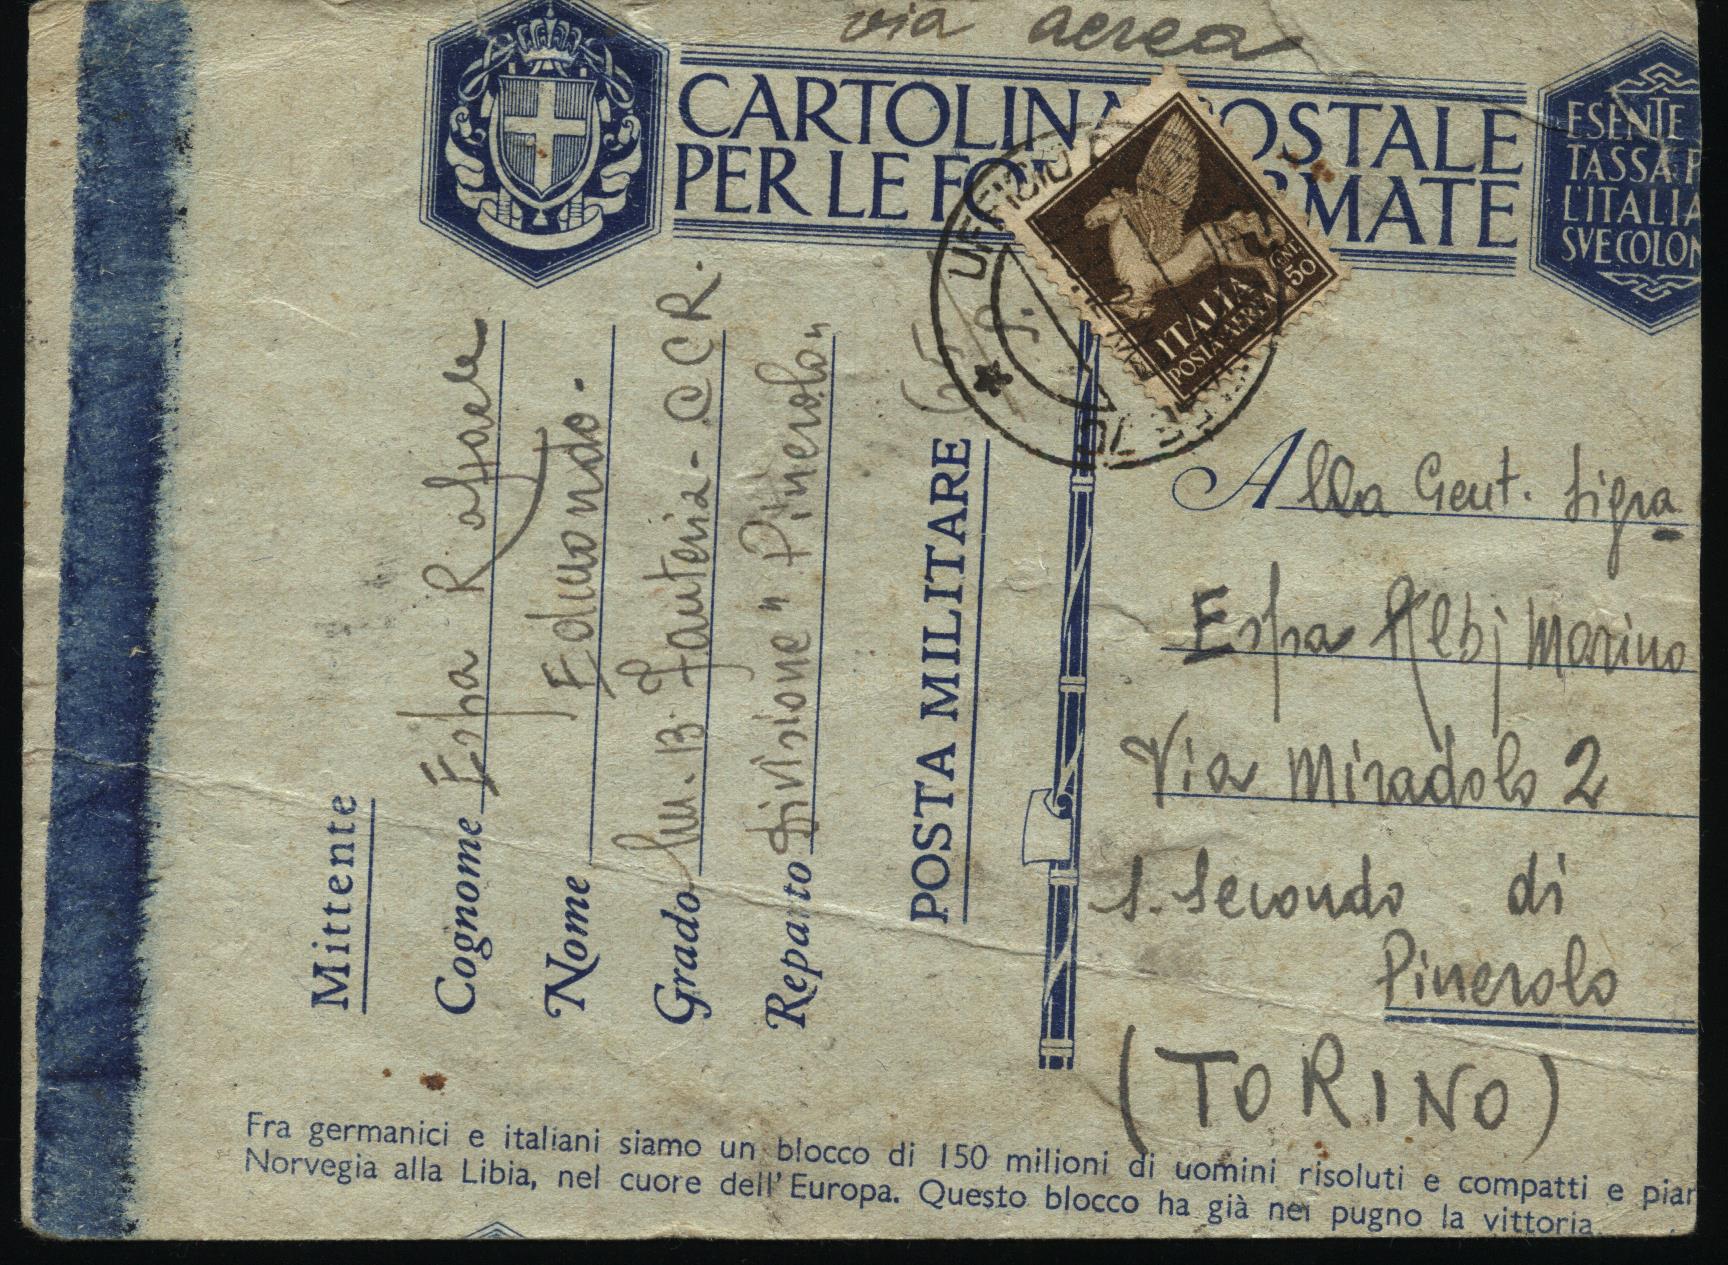 via aerea
CARTOLINA POSTALE
PER LE FO RMATE
ESENTE
TASSA P
L'ITALIA
SVE COLON
UFFICIO
ITALIA
POSTA AEREA
CENT. 50
Mittente
Cognome Espa Raffaele
Nome Edmondo.
Grado Fanteria - C C R.
Reparto Divisione "Pinerolo"
POSTA MILITARE 65.
Alla Gent. Sigra
Espa Albj Marino
Via Miradolo 2
S. Secondo di
Pinerolo
(TORINO)
Fra germanici e italiani siamo un blocco di 150 milioni di uomini risoluti e compatti e pian
Norvegia alla Libia, nel cuore dell'Europa. Questo blocco ha già nel pugno la vittoria.